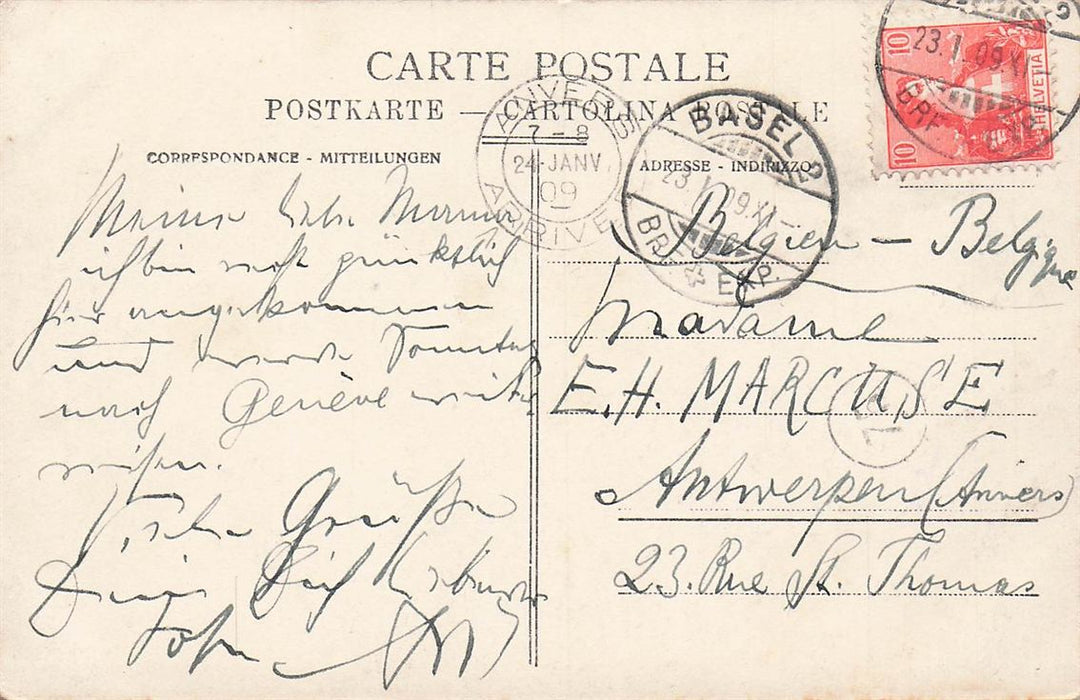 CARTE POSTALE
POSTKARTE — CARTOLINA POSTALE
CORRESPONDANCE - MITTEILUNGEN
ADRESSE - INDIRIZZO
10
HELVETIA
10
23.1.09.XI
BRF. EXP.
BASEL 2
23.1.09.XI-
BRF. EXP.
ANVERS
7-8
24 JANV
09
ARRIVEE
Meine liebe Mama
ich bin recht pünktlich
hier angekommen
und werde Sonntag
nach Genève weiter
reisen.
Liebe Grüße
Dein Dich liebender
Sohn
Belgien — Belgique
Madame
E.H. MARCUSE
Antwerpen (Anvers)
23. Rue St. Thomas